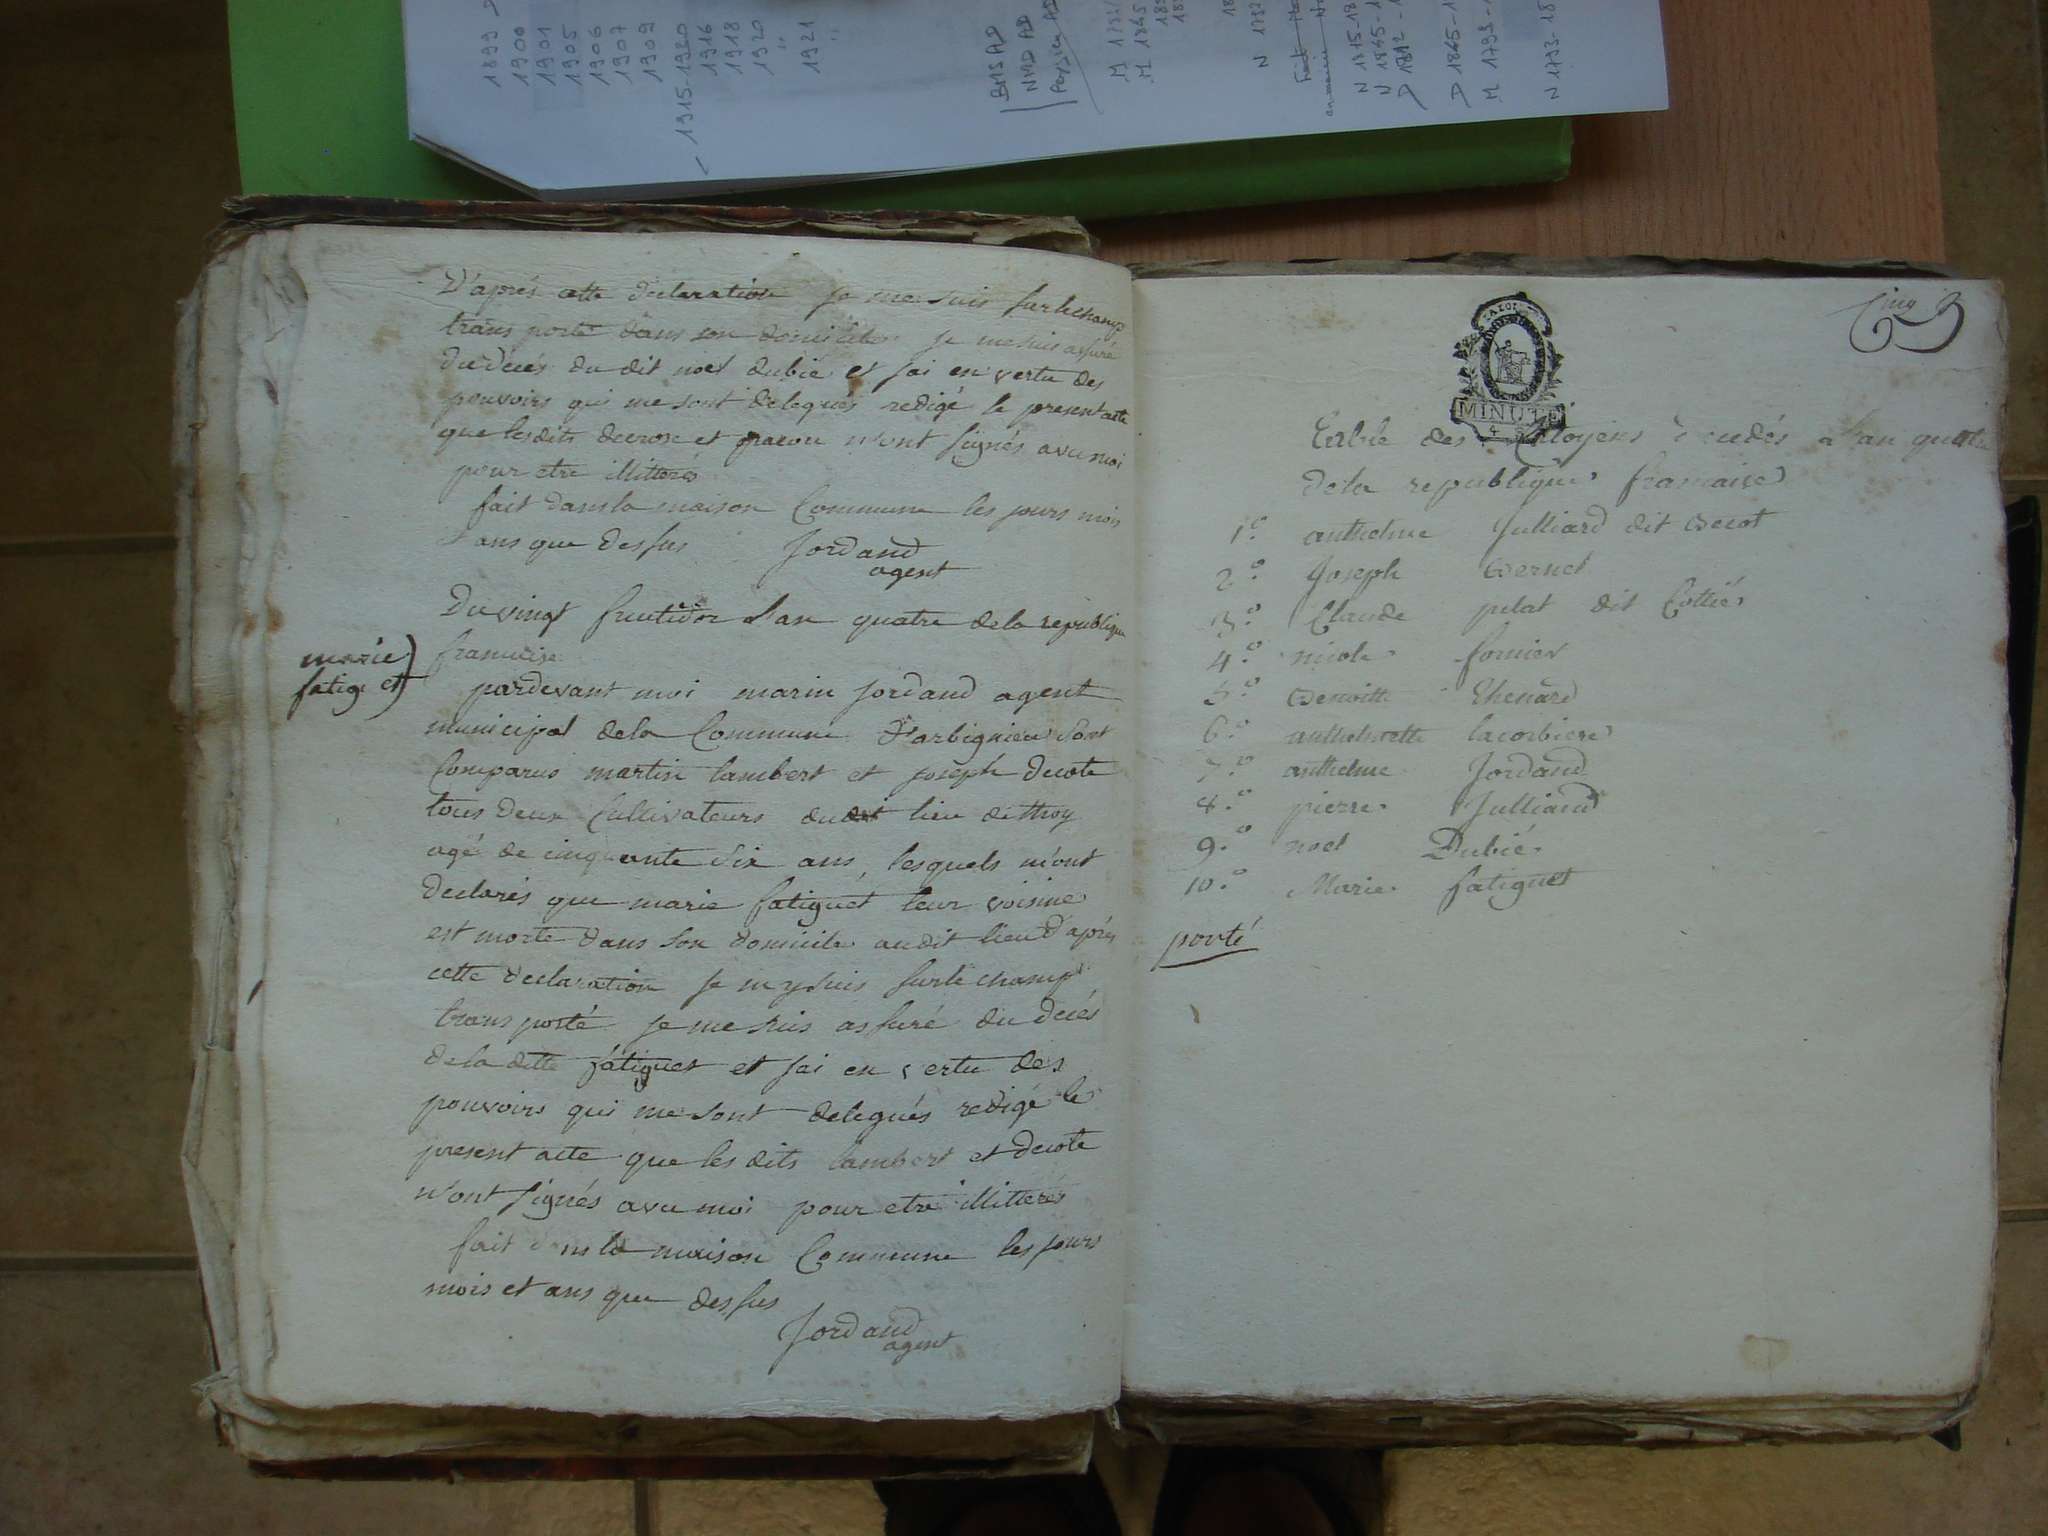 1899 D
1900
1901
1905
1906
1907
1909
1915-1920
1916
1918
1920
1921
BMS AD
NMD AD
M 1845
N 1793-18
D'après cette declaration je me suis surlechamp
transporté dans son domicile je me suis assuré
du décès du dit noel dubié et jai en vertu des
pouvoirs qui me sont delegués redigé le present acte
que lesdits decrose et n'ont signés avec moi
pour etre illitterés
fait dans la maison Commune les jours mois
& ans que dessus Jordand
agent
Du vingt fructidor l'an quatre de la republique
francaise
marie
fatiguet
pardevant moi marin Jordand agent
municipal dela Commune d'arbignieu sont
Comparus martin lambert et joseph decote
tous deux Cultivateurs dudit lieu de thoy
agé de cinquante six ans, lesquels m'ont
declarés que marie fatiguet leur voisine
est morte dans son domicile audit lieu d'après
cette declaration je my suis surle champ
transporté je me suis assuré du decés
dela ditte fatiguet et jai en vertu des
pouvoirs qui me sont delegués redigé le
present acte que les dits lambert et decote
n'ont signés avec moi pour etre illitterés
fait dans la maison Commune les jours
mois et ans que dessus
Jordand
agent
Cinq
MINUTE
Table des Citoyens décedés l'an quatre
dela republique francaise
1.º anthelme Julliard dit Becot
2.º Joseph Bernet
3.º Claude pelat dit Cottié
4.º nicole fornier
5.º Benoitte thenard
6.º anthelmette lacorbiere
7.º anthelme Jordand
8.º pierre Julliard
9.º noel Dubié
10.º Marie fatiguet
porté